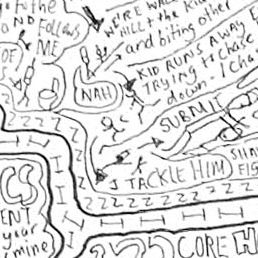 to the
AND Follows
ME
WE'RE WAL
HILL + the Kid
and biting other
NAH
KID RUNS AWAY
Trying to Chase
down. I Cha
SUBMIT
I TACKLE HIM
SHA
FIS
ENT
your
mine
CORE